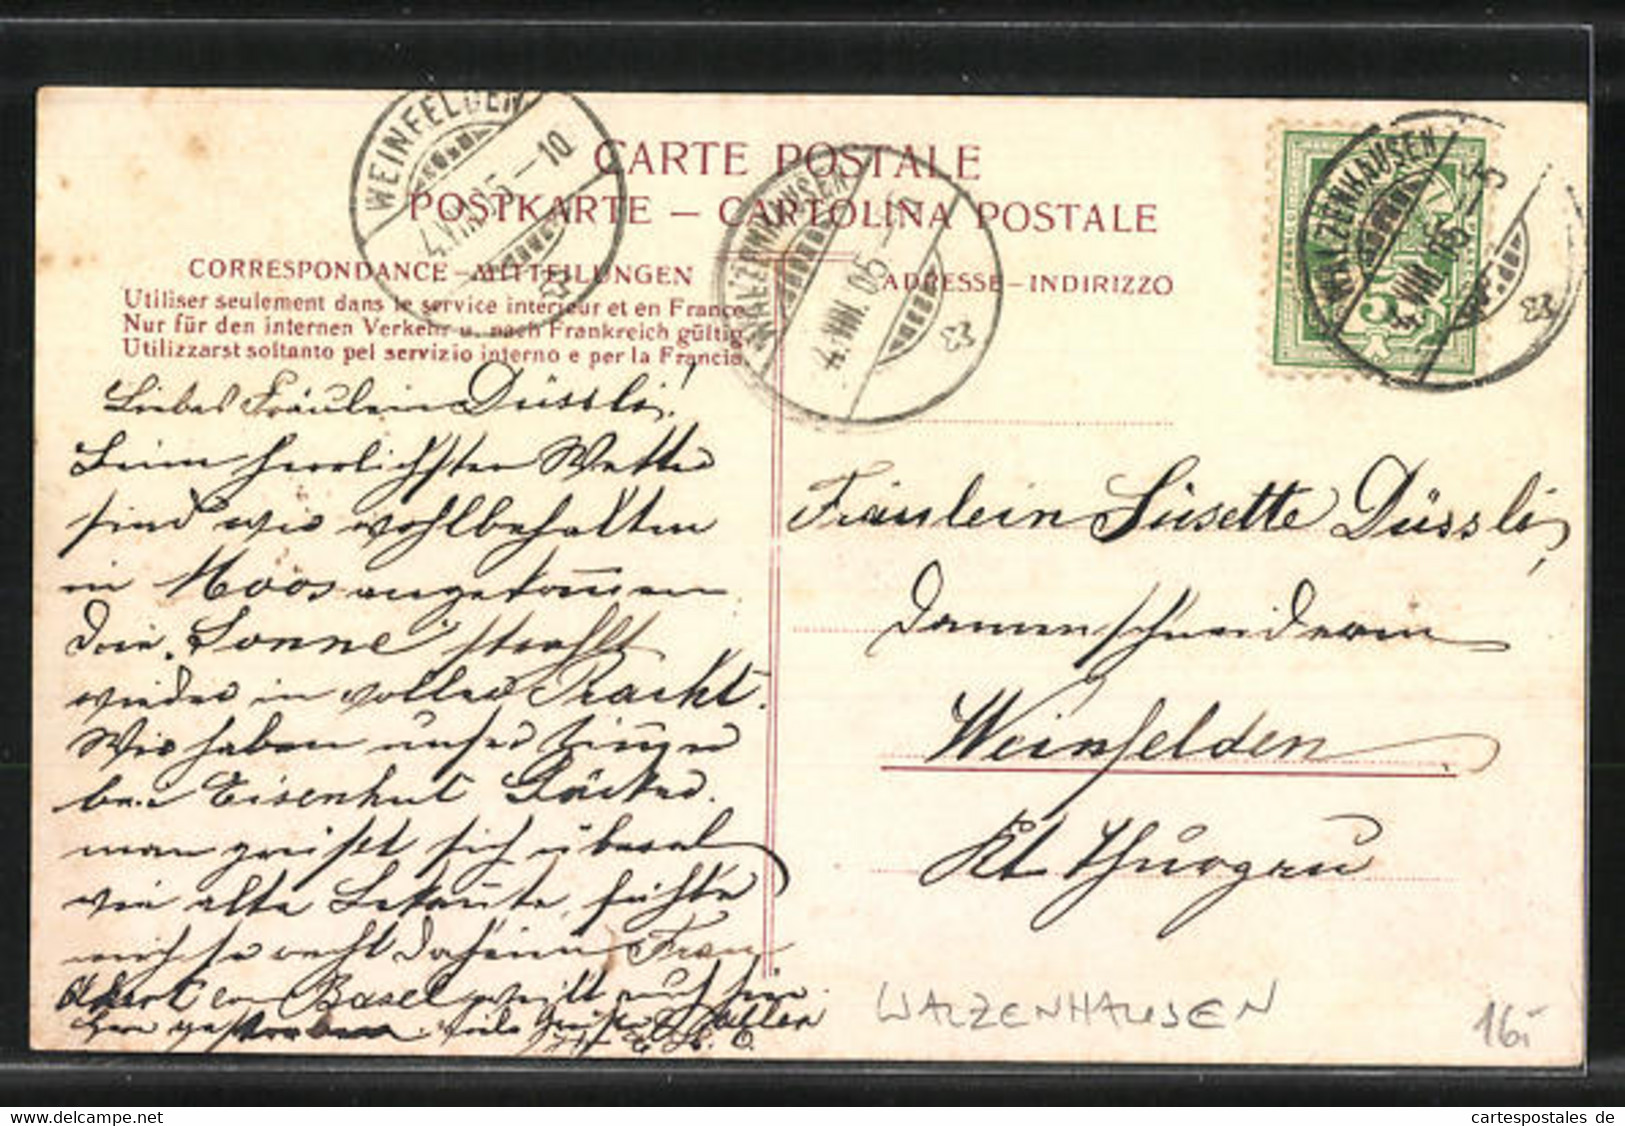 WEINFELDEN
4.VIII.05–10
CARTE POSTALE
POSTKARTE — CARTOLINA POSTALE
CORRESPONDANCE – MITTEILUNGEN
Utiliser seulement dans le service intérieur et en France
Nur für den internen Verkehr u. nach Frankreich gültig.
Utilizzarsi soltanto pel servizio interno e per la Francia.
WALZENHAUSEN
4.VIII.05
ADRESSE – INDIRIZZO
WALZENHAUSEN
4.VIII.05–5
5
Liebes Fräulein Düssli!
Beim herrlichsten Wetter
sind wir wohlbehalten
in Moos angekommen
Die „Sonne" strahlt
wieder in voller Pracht.
Wir haben unser Zimmer
bei Eisenhut Bäcker.
man grüsst sich überal
wie alte Bekannte, fühlte
mich so recht daheim Frau
in Basel weilt auch hier
viele Grüsse
Fräulein Susette Düssli,
Damenschneiderin
Weinfelden
Kt. Thurgau
WALZENHAUSEN
16.-
cartespostales de